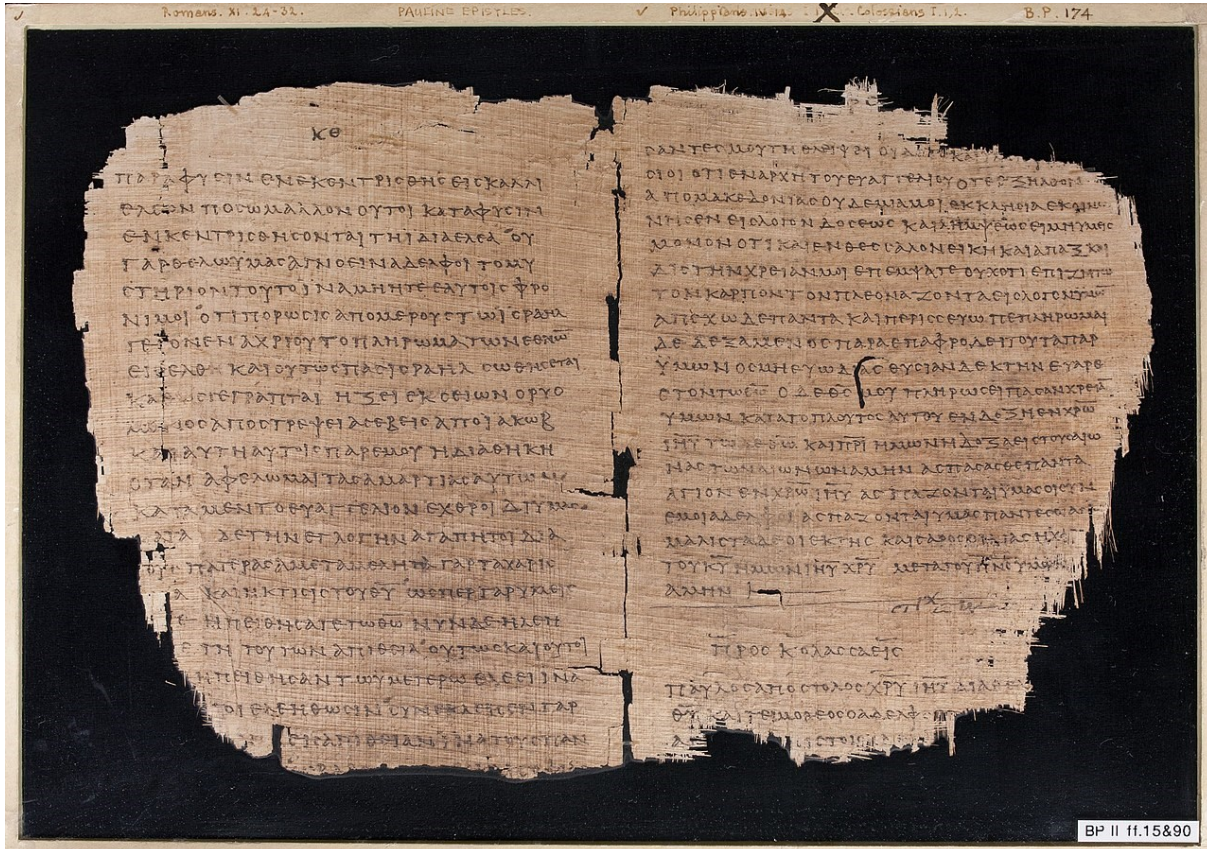 Romans. XI. 24-32. PAULINE EPISTLES. Philippians. IV. Colossians I. 1, 2. B.P. 174
ΚΘ
ΠΑΡΑΦΥϹΙΝ ΕΝΕΚΕΝΤΡΙϹΘΗϹ ΕΙϹ ΚΑΛΛΙ
ΕΛΕΟΝ ΠΟϹΩ ΜΑΛΛΟΝ ΟΥΤΟΙ ΚΑΤΑΦΥϹΙΝ
ΕΝΚΕΝΤΡΙϹΘΗϹΟΝΤΑΙ ΤΗΙΔΙΑ ΕΛΕΑ ΟΥ
ΓΑΡ ΘΕΛΩ ΥΜΑϹ ΑΓΝΟΕΙΝ ΑΔΕΛΦΟΙ ΤΟ ΜΥ
ϹΤΗΡΙΟΝ ΤΟΥΤΟ ΙΝΑ ΜΗ ΗΤΕ ΕΑΥΤΟΙϹ ΦΡΟ
ΝΙΜΟΙ ΟΤΙ ΠΩΡΩϹΙϹ ΑΠΟ ΜΕΡΟΥϹ ΤΩ ΙϹΡΑΗΛ
ΓΕΓΟΝΕΝ ΑΧΡΙ ΟΥ ΤΟ ΠΛΗΡΩΜΑ ΤΩΝ ΕΘΝΩ̅
ΕΙϹΕΛΘΗ ΚΑΙ ΟΥΤΩϹ ΠΑϹ ΙϹΡΑΗΛ ϹΩΘΗϹΕΤΑΙ
ΚΑΘΩϹ ΓΕΓΡΑΠΤΑΙ ΗΞΕΙ ΕΚ ϹΕΙΩΝ Ο ΡΥΟ
ΜΕΝΟϹ ΑΠΟϹΤΡΕΨΕΙ ΑϹΕΒΕΙϹ ΑΠΟ ΙΑΚΩΒ
ΚΑΙ ΑΥΤΗ ΑΥΤΟΙϹ ΠΑΡ ΕΜΟΥ Η ΔΙΑΘΗΚΗ
ΟΤΑΝ ΑΦΕΛΩΜΑΙ ΤΑϹ ΑΜΑΡΤΙΑϹ ΑΥΤΩΝ
ΚΑΤΑ ΜΕΝ ΤΟ ΕΥΑΓΓΕΛΙΟΝ ΕΧΘΡΟΙ ΔΙ ΥΜΑϹ
ΚΑΤΑ ΔΕ ΤΗΝ ΕΓΛΟΓΗΝ ΑΓΑΠΗΤΟΙ ΔΙΑ
ΠΑΤΕΡΑϹ ΑΜΕΤΑΜΕΛΗΤΑ ΓΑΡ ΤΑ ΧΑΡΙϹ
ΚΑΙ Η ΚΤΙϹΙϹ ΤΟΥ Θ̅Υ̅ ΩϹΠΕΡ ΓΑΡ ΥΜΕΙϹ
ΗΠΕΙΘΗϹΑΤΕ ΤΩ Θ̅Ω̅ ΝΥΝ ΔΕ ΗΛΕΗ
ΤΗ ΤΟΥΤΩΝ ΑΠΙΘΕΙΑ ΟΥΤΩϹ ΚΑΙ ΟΥΤΟΙ
ΗΠΕΙΘΗϹΑΝ ΤΩ ΥΜΕΤΕΡΩ ΕΛΕΕΙ ΙΝΑ
ΟΙ ΕΛΕΗΘΩϹΙΝ ϹΥΝΕΚΛΕΙϹΕΝ ΓΑΡ
ΕΙϹ ΑΠΙΘΕΙΑΝ ΙΝΑ ΤΟΥϹ ΠΑΝ
ϹΑΝΤΕϹ ΜΟΥ ΤΗ ΘΛΕΙΨΕΙ ΟΙΔΑΤΕ
ϹΙΟΙ ΟΤΙ ΕΝ ΑΡΧΗ ΤΟΥ ΕΥΑΓΓΕΛΙΟΥ ΟΤΕ ΕΞΗΛΘΟΝ
ΑΠΟ ΜΑΚΕΔΟΝΙΑϹ ΟΥΔΕΜΙΑ ΜΟΙ ΕΚΚΛΗϹΙΑ ΕΚΟΙΝΩ
ΝΗϹΕΝ ΕΙϹ ΛΟΓΟΝ ΔΟϹΕΩϹ ΚΑΙ ΛΗΜΨΕΩϹ ΕΙ ΜΗ ΥΜΕΙϹ
ΜΟΝΟΝ ΟΤΙ ΚΑΙ ΕΝ ΘΕϹϹΑΛΟΝΕΙΚΗ ΚΑΙ ΑΠΑΞ ΚΑΙ
ΔΙϹ ΤΗΝ ΧΡΕΙΑΝ ΜΟΙ ΕΠΕΜΨΑΤΕ ΟΥΧ ΟΤΙ ΕΠΙΖΗΤΩ
ΤΟΝ ΚΑΡΠΟΝ ΤΟΝ ΠΛΕΟΝΑΖΟΝΤΑ ΕΙϹ ΛΟΓΟΝ ΥΜΩ̅
ΑΠΕΧΩ ΔΕ ΠΑΝΤΑ ΚΑΙ ΠΕΡΙϹϹΕΥΩ ΠΕΠΛΗΡΩΜΑΙ
ΔΕ ΔΕΞΑΜΕΝΟϹ ΠΑΡΑ ΕΠΑΦΡΟΔΕΙΤΟΥ ΤΑ ΠΑΡ
ΥΜΩΝ ΟϹΜΗ ΕΥΩΔΙΑϹ ΘΥϹΙΑΝ ΔΕΚΤΗΝ ΕΥΑΡΕ
ϹΤΟΝ ΤΩ Θ̅Ω̅ Ο ΔΕ Θ̅Ϲ̅ ΜΟΥ ΠΛΗΡΩϹΕΙ ΠΑϹΑΝ ΧΡΕΙΑ̅
ΥΜΩΝ ΚΑΤΑ ΤΟ ΠΛΟΥΤΟϹ ΑΥΤΟΥ ΕΝ ΔΟΞΗ ΕΝ Χ̅Ρ̅Ω̅
Ι̅Η̅Υ̅ ΤΩ ΔΕ Θ̅Ω̅ ΚΑΙ Π̅Ρ̅Ι̅ ΗΜΩΝ Η ΔΟΞΑ ΕΙϹ ΤΟΥϹ ΑΙΩ
ΝΑϹ ΤΩΝ ΑΙΩΝΩΝ ΑΜΗΝ ΑϹΠΑϹΑϹΘΕ ΠΑΝΤΑ
ΑΓΙΟΝ ΕΝ Χ̅Ρ̅Ω̅ Ι̅Η̅Υ̅ ΑϹΠΑΖΟΝΤΑΙ ΥΜΑϹ ΟΙ ϹΥΝ
ΕΜΟΙ ΑΔΕΛΦΟΙ ΑϹΠΑΖΟΝΤΑΙ ΥΜΑϹ ΠΑΝΤΕϹ ΟΙ ΑΓΙ
ΜΑΛΙϹΤΑ ΔΕ ΟΙ ΕΚ ΤΗϹ ΚΑΙϹΑΡΟϹ ΟΙΚΙΑϹ Η ΧΑΡΙϹ
ΤΟΥ Κ̅Υ̅ ΗΜΩΝ Ι̅Η̅Υ̅ Χ̅Ρ̅Υ̅ ΜΕΤΑ ΤΟΥ Π̅Ν̅Ϲ̅ ΥΜΩΝ
ΑΜΗΝ
ΠΡΟϹ ΚΟΛΑϹϹΑΕΙϹ
ΠΑΥΛΟϹ ΑΠΟϹΤΟΛΟϹ Χ̅Ρ̅Υ̅ Ι̅Η̅Υ̅ ΔΙΑ ΘΕ
Θ̅Υ̅ ΚΑΙ ΤΕΙΜΟΘΕΟϹ Ο ΑΔΕΛΦ
BP II ff.15&90